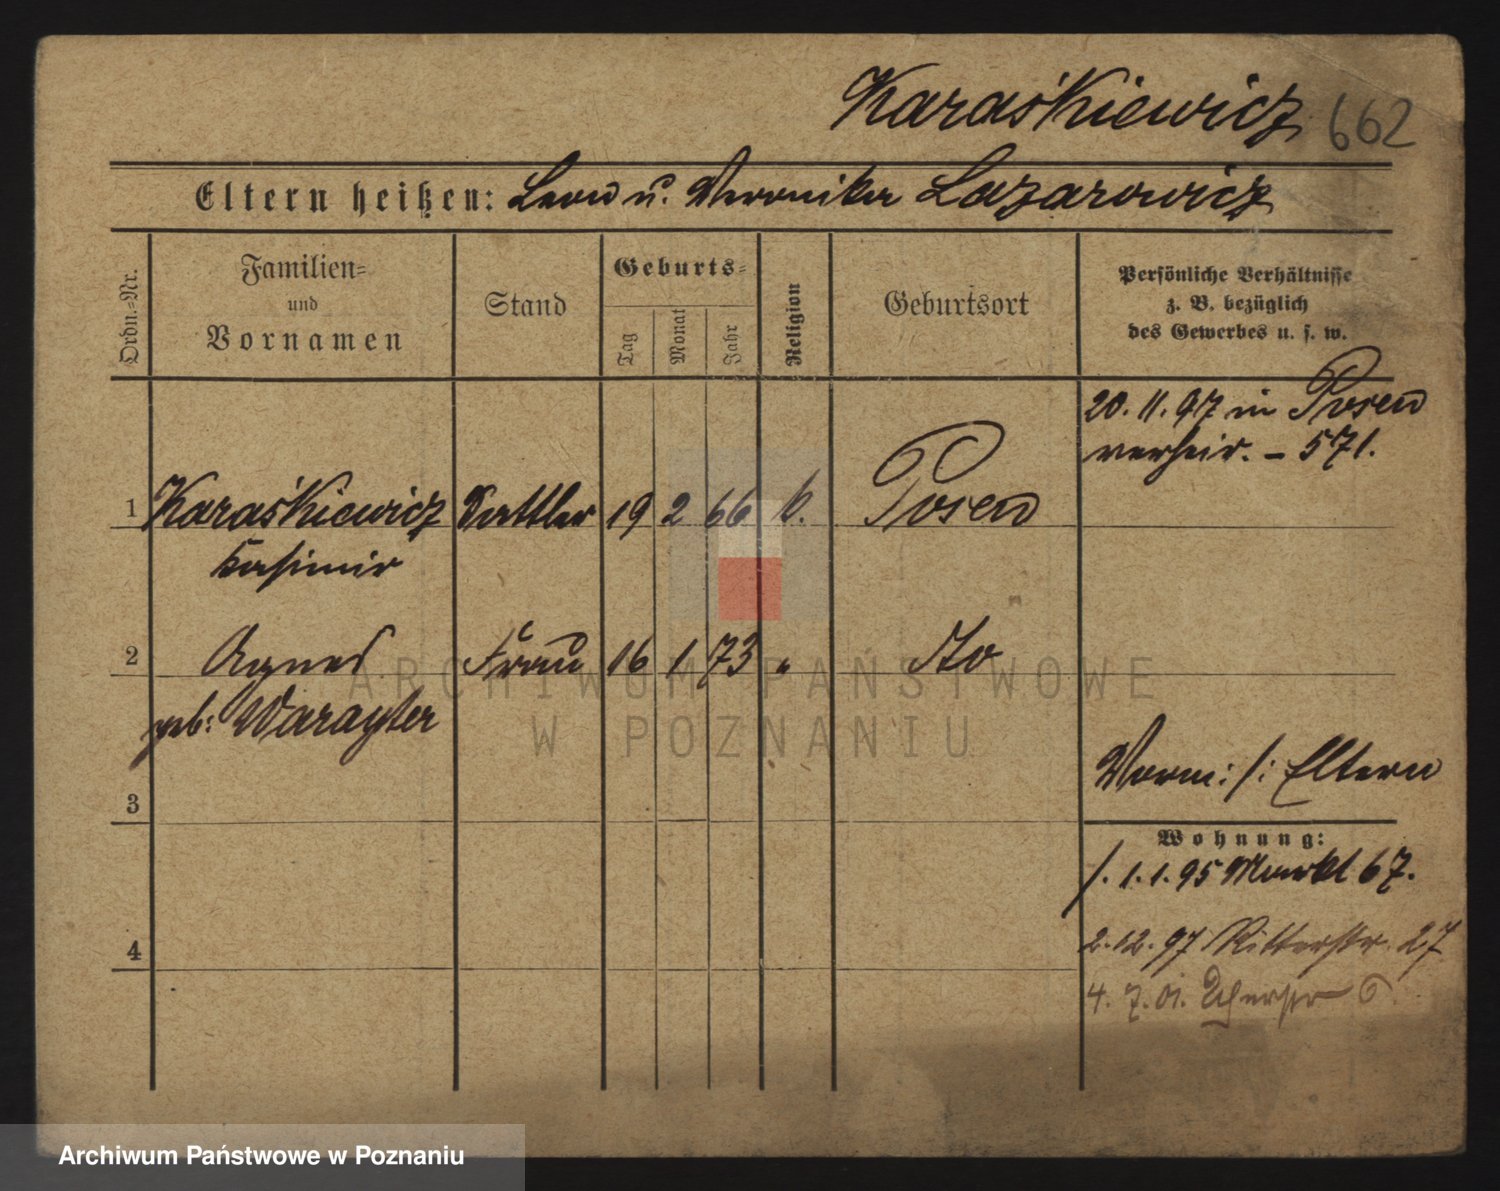 Karaśkiewicz 662
Eltern heißen: Leon u. Veronika Lazarowicz
Ordn.-Nr.
Familien-
und
Vornamen
Stand
Geburts-
Tag
Monat
Jahr
Religion
Geburtsort
Persönliche Verhältnisse
z. B. bezüglich
des Gewerbes u. s. w.
20. 11. 97 in Posen
verheir. – 571.
1 Karaśkiewicz Sattler 19 2 66 k. Posen
Kasimir
2 Agnes Frau 16 1 73 " Do
geb: Waragter
Vorm: /: Eltern
3
Wohnung:
/. 1. 1. 95 Markt 67.
2. 12. 97 Ritterstr. 27
4
4. 7. 01. 6.
ARCHIWUM PAŃSTWOWE
W POZNANIU
Archiwum Państwowe w Poznaniu